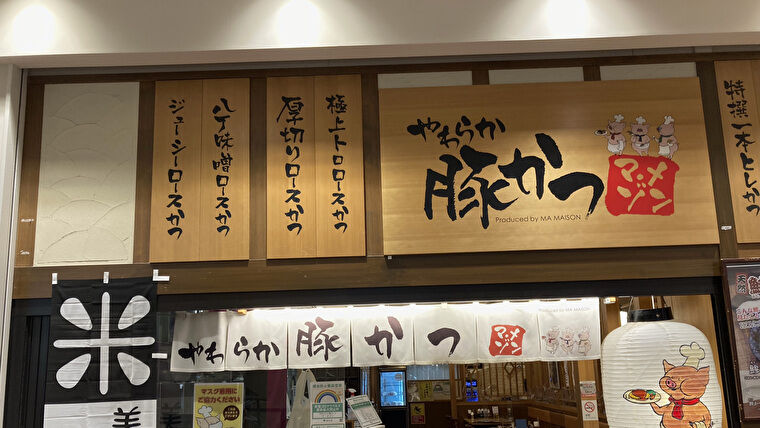 ジューシーロースかつ
八丁味噌ロースかつ
厚切りロースかつ
極上トロロースかつ
やわらか
豚かつ
マ・メゾン
Produced by MA MAISON
特撰一本とんかつ
米
美
やわらか豚かつ
マ・メゾン
Produced by MA MAISON
マスク着用に
ご協力ください
天然